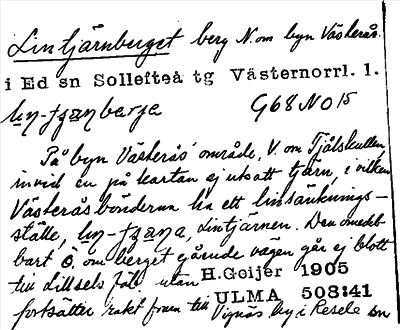 Lintjärnberget berg N. om byn Västerås
i Ed sn Sollefteå tg Västernorrl. l.
G68 NO 15
På byn Västerås' område, V. om Tjålskullen
invid en på kartan ej utsatt tjärn, i vilken
Västeråsbönderna ha ett linsänknings-
ställe, Lintjärnen. Den omedel-
bart Ö. om berget gående vägen går ej blott
till dillsels fäb. utan H.Geijer 1905
fortsätter rakt fram till by i Resele sn
ULMA 508:41